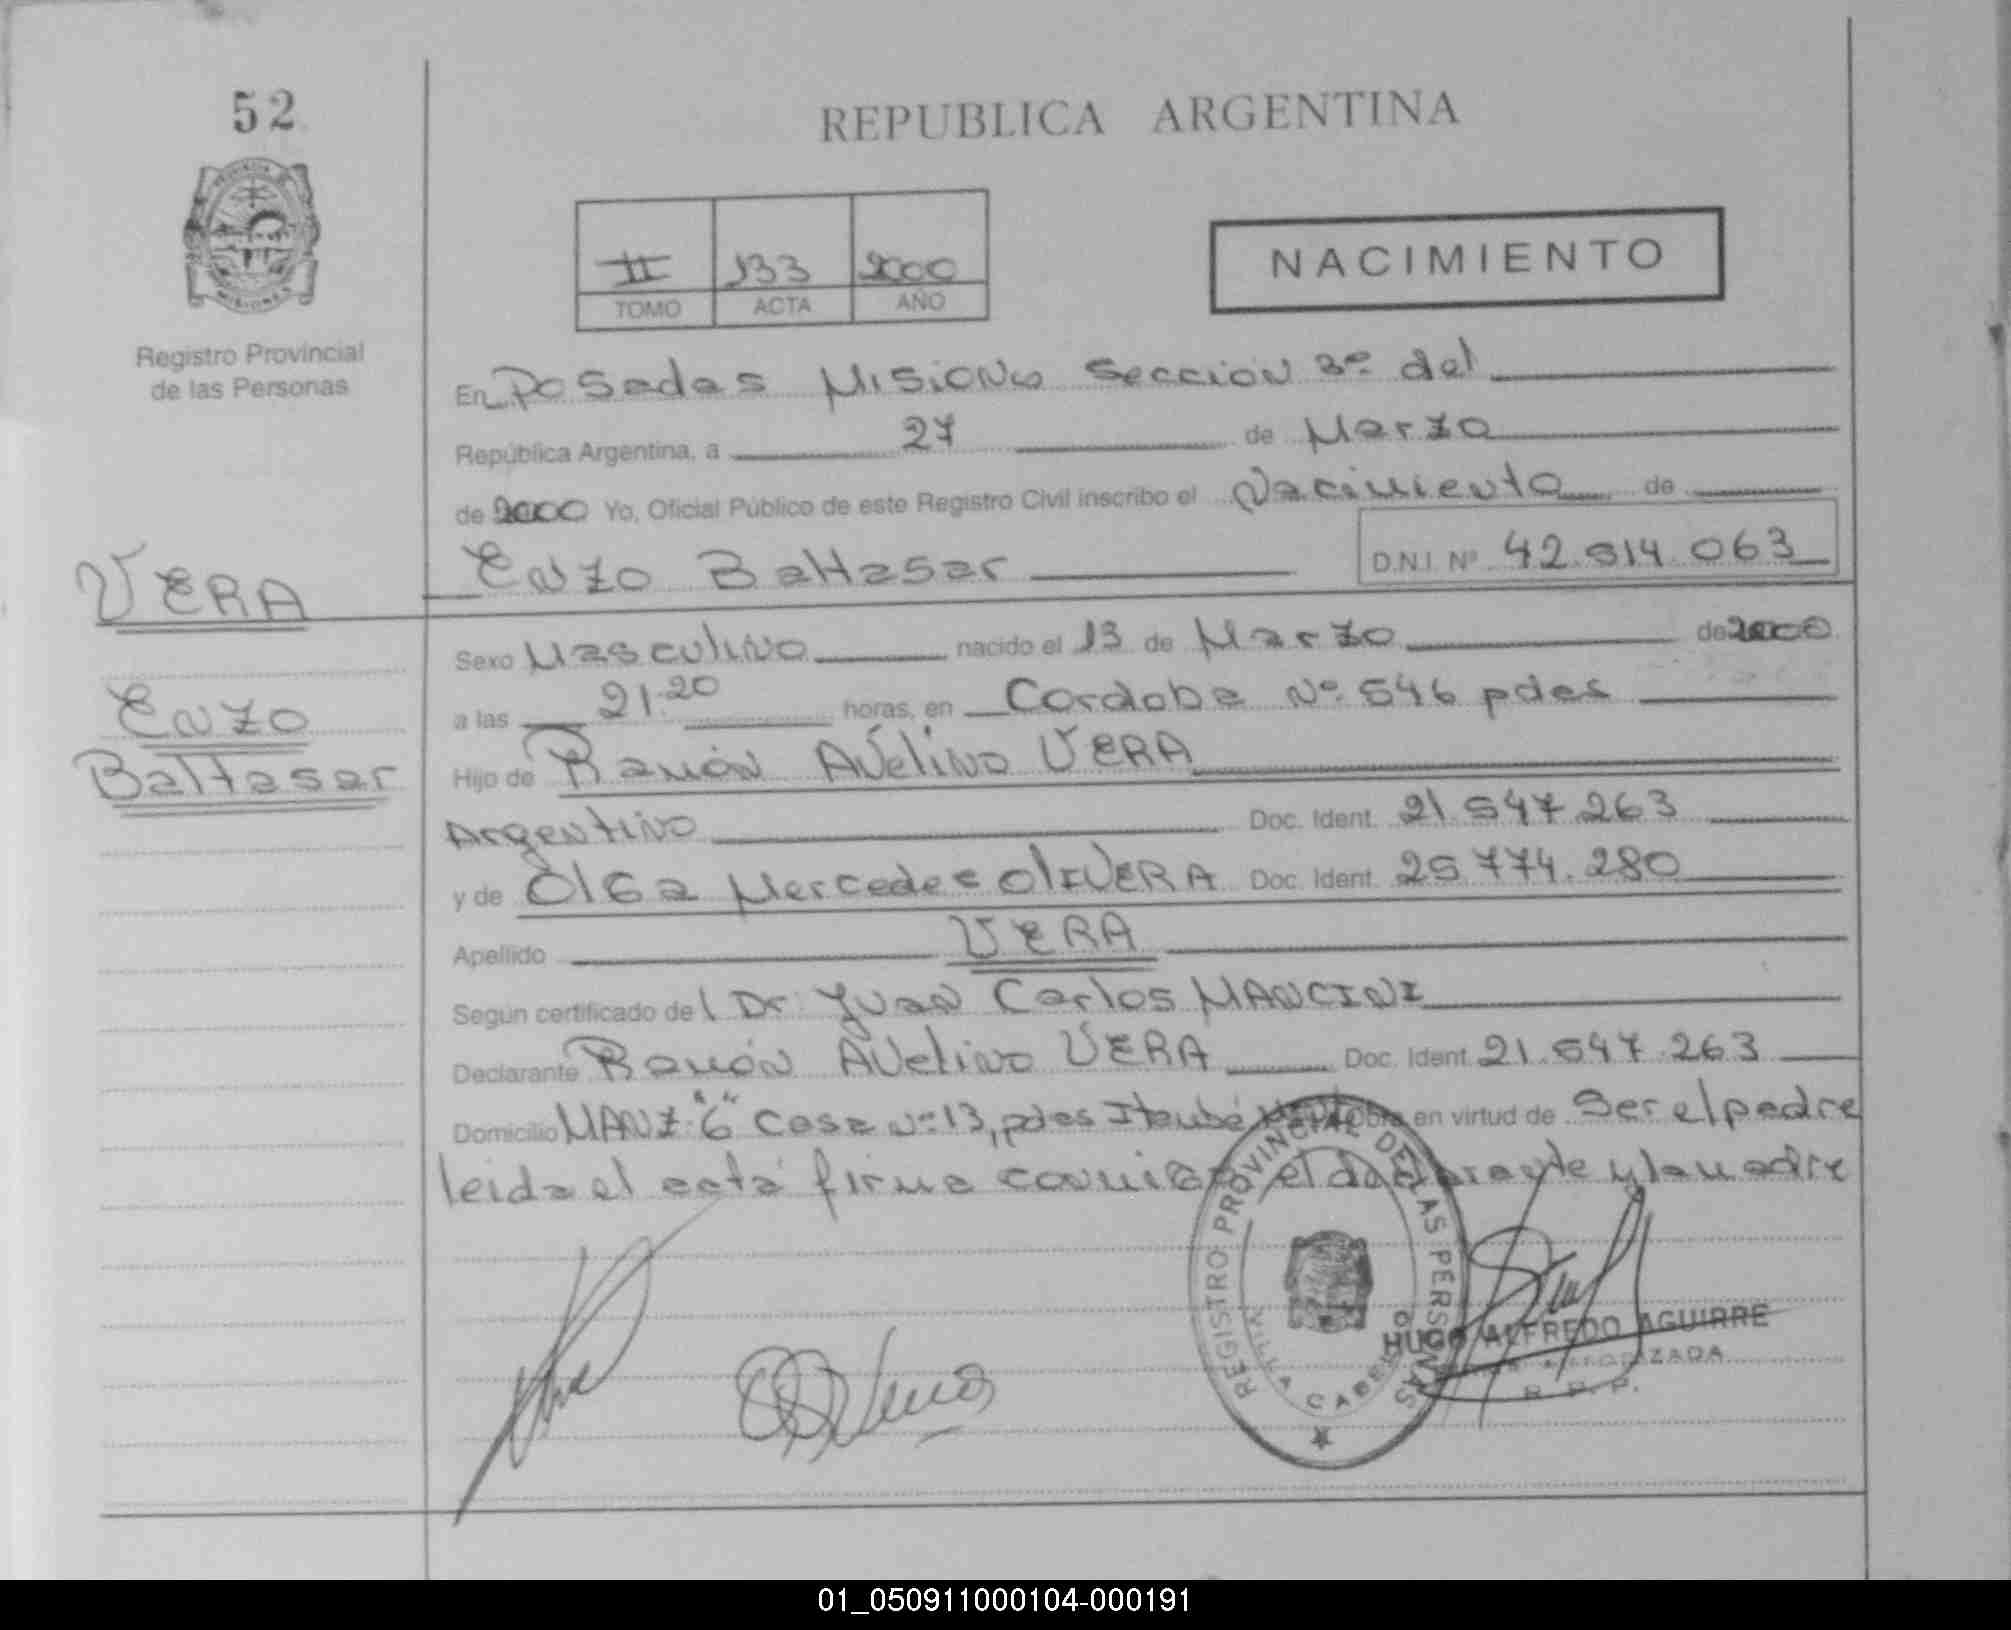 52
REPUBLICA ARGENTINA
II 133 2000
TOMO ACTA AÑO
NACIMIENTO
Registro Provincial
de las Personas
En Posadas Misiones Sección 3ª del
República Argentina, a 27 de Marzo
de 2000 Yo, Oficial Público de este Registro Civil inscribo el Nacimiento de
Enzo Baltasar D.N.I. Nº 42.514.063
VERA
Enzo
Baltasar
Sexo Masculino nacido el 13 de Marzo de 2000
a las 21.20 horas, en Cordoba Nº 546 pdas
Hijo de Ramón Avelino VERA
Argentino Doc. Ident. 21.547.263
y de Olga Mercedes OlIVERA Doc. Ident. 25.774.280
Apellido VERA
Según certificado del Dr. Juan Carlos MANCINI
Declarante Ramón Avelino VERA Doc. Ident. 21.547.263
Domicilio MANZ "6" Casa Nº 13, pdas Itaubé en virtud de Ser el padre
leida el acta firma conmigo el declarante y la madre
REGISTRO PROVINCIAL DE LAS PERSONAS
VILLA CABELLO
HUGO ALFREDO AGUIRRE
AUTORIZADA
R. P. P.
01_050911000104-000191